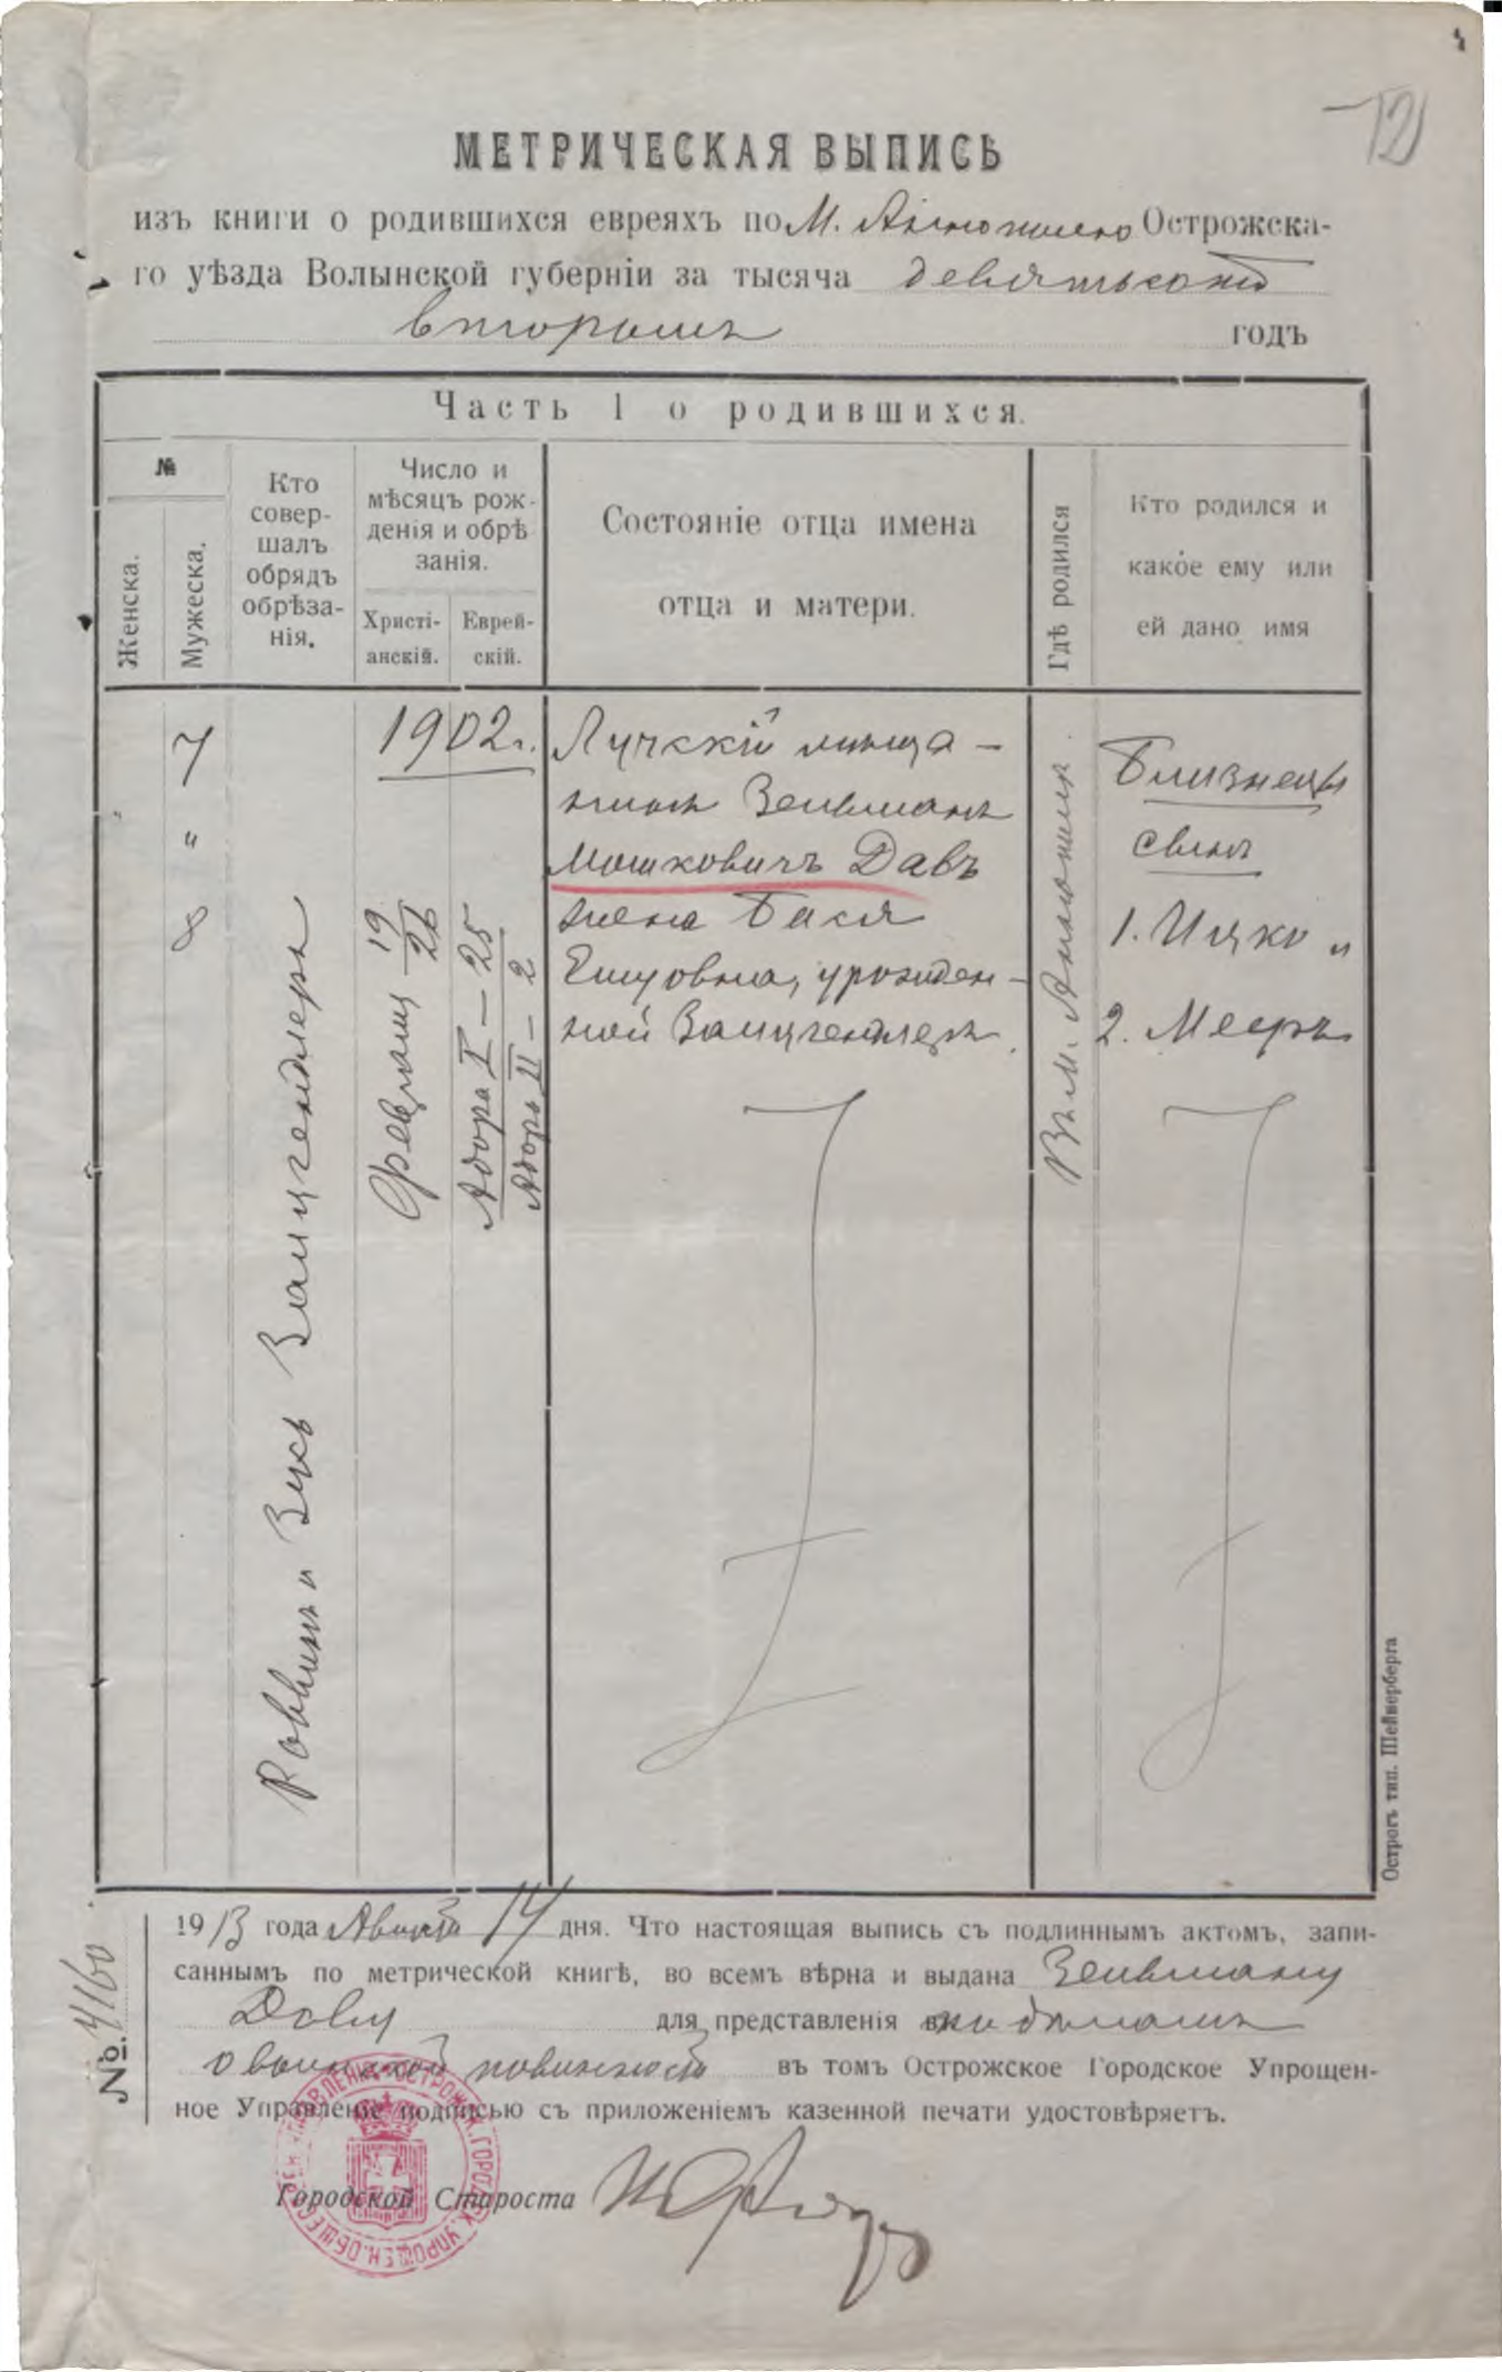 12
МЕТРИЧЕСКАЯ ВЫПИСЬ
изъ книги о родившихся евреяхъ по М. Аннополю Острожска-
го уѣзда Волынской губерніи за тысяча девятьсотъ
второмъ годъ
Часть 1 о родившихся.
№
Женска.
Мужеска.
Кто
совер-
шалъ
обрядъ
обрѣза-
нія.
Число и
мѣсяцъ рож-
денія и обрѣ
занія.
Христі-
анскій.
Еврей-
скій.
Состояніе отца имена
отца и матери.
Гдѣ родился
Кто родился и
какое ему или
ей дано имя
7
"
8
Раввинъ и Зусь
1902 г.
Февраля 19
26
Адора I – 25
Адоръ II – 2
Луческій мѣща-
нинъ Зельманъ
Мошковичъ Давъ
жена Бася
урожден-
ной
Въ м. Аннополѣ.
Близнецы
сыны
1. Ицко и
2. Мееръ
Острогъ тип. Шейнерберга
№. 4160
1913 года Августа 14 дня. Что настоящая выпись съ подлиннымъ актомъ, запи-
саннымъ по метрической книгѣ, во всемъ вѣрна и выдана Зельману
Даву для представленія къ дѣламъ
о воинской повинности въ томъ Острожское Городское Упрощен-
ное Управленіе подписью съ приложеніемъ казенной печати удостовѣряетъ.
Городской Староста